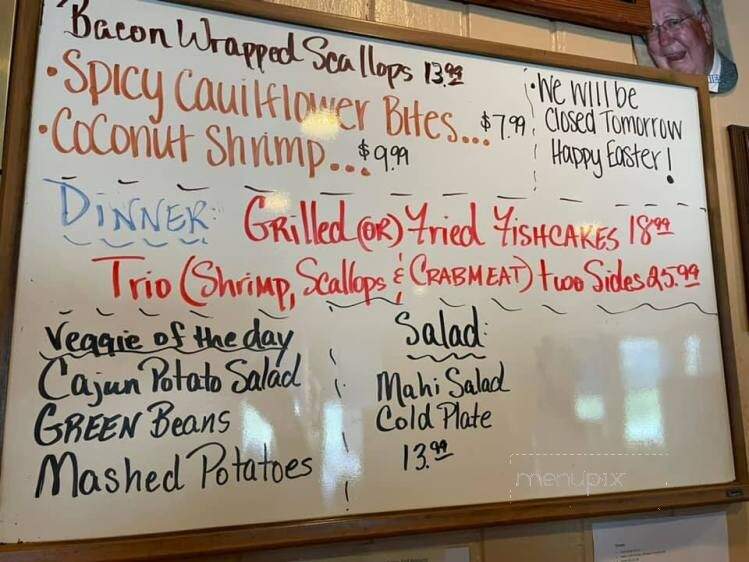 Bacon Wrapped Scallops 13.99
• Spicy Cauilflower Bites... $7.99
• Coconut Shrimp... $9.99
• We will be
Closed Tomorrow
Happy Easter!
DINNER: GRilled (OR) Fried FISHCAKES 18.99
Trio (Shrimp, Scallops & CRABMEAT) two Sides 25.99
Veggie of the day
Cajun Potato Salad
GREEN Beans
Mashed Potatoes
Salad:
Mahi Salad
Cold Plate
13.99
menupix